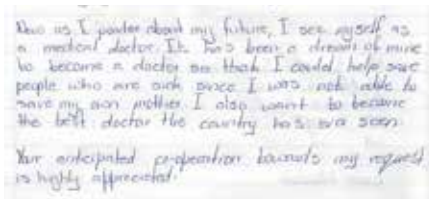 Now as I ponder about my future, I see myself as
a medical doctor. It has been a dream of mine
to become a doctor so that I could help save
people who are sick since I was not able to
save my own mother. I also want to become
the best doctor the country has ever seen.
Your anticipated co-operation towards my request
is highly appreciated.